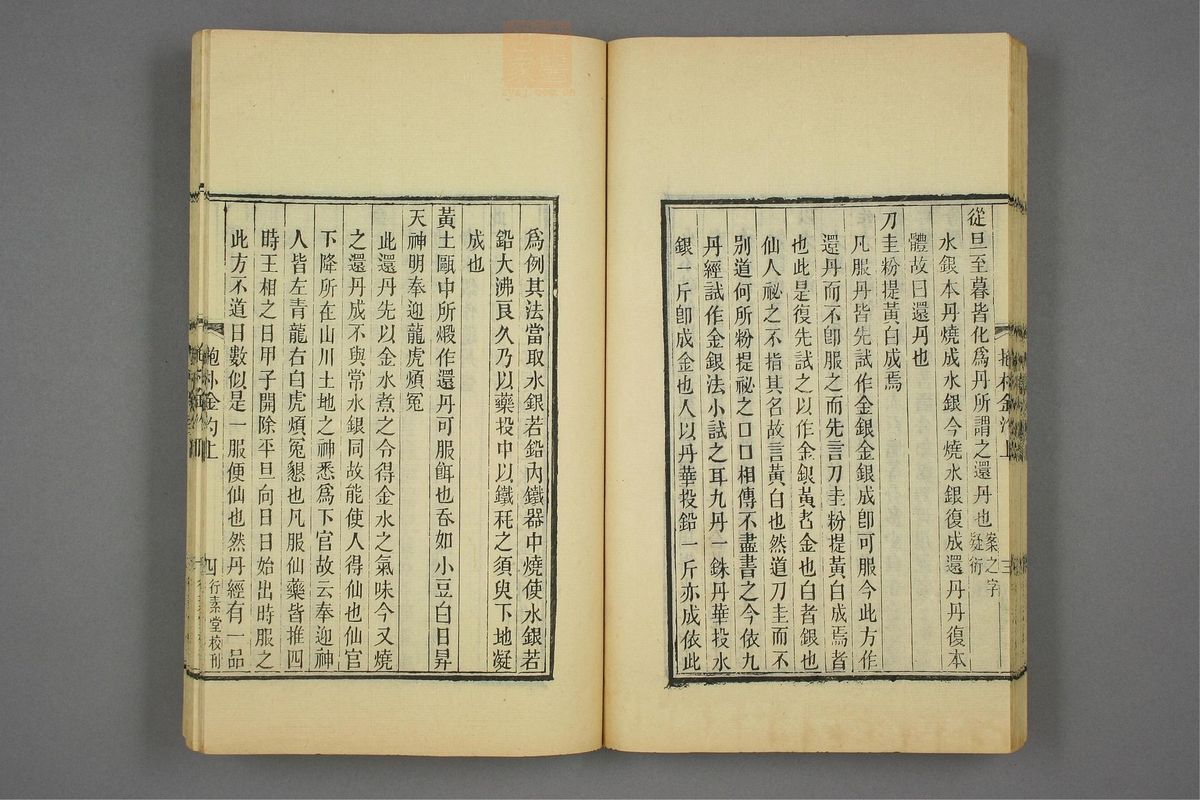 從旦至暮皆化為丹所謂之還丹也案之字疑衍
水銀本丹燒成水銀今燒水銀復成還丹丹復本
體故曰還丹也
刀圭粉提黃白成焉
凡服丹皆先試作金銀金銀成卽可服今此方作
還丹而不卽服之而先言刀圭粉提黃白成焉者
也此是復先試之以作金銀黃者金也白者銀也
仙人祕之不指其名故言黃白也然道刀圭而不
別道何所粉提祕之口口相傳不盡書之今依九
丹經試作金銀法小試之耳九丹一銖丹華投水
銀一斤卽成金也人以丹華投鉛一斤亦成依此
抱朴金汋上
三
為例其法當取水銀若鉛內鐵器中燒使水銀若
鉛大沸良久乃以藥投中以鐵秏之須臾下地凝
成也
黃土甌中所煅作還丹可服餌也吞如小豆白日昇
天神明奉迎龍虎煩冤
此還丹先以金水煮之令得金水之氣味今又燒
之還丹成不與常水銀同故能使人得仙也仙官
下降所在山川土地之神悉為下官故云奉迎神
人皆左青龍右白虎煩冤懇也凡服仙藥皆推四
時王相之日甲子開除平旦向日日始出時服之
此方不道日數似是一服便仙也然丹經有一品
抱朴金汋上
四
行素堂校刊